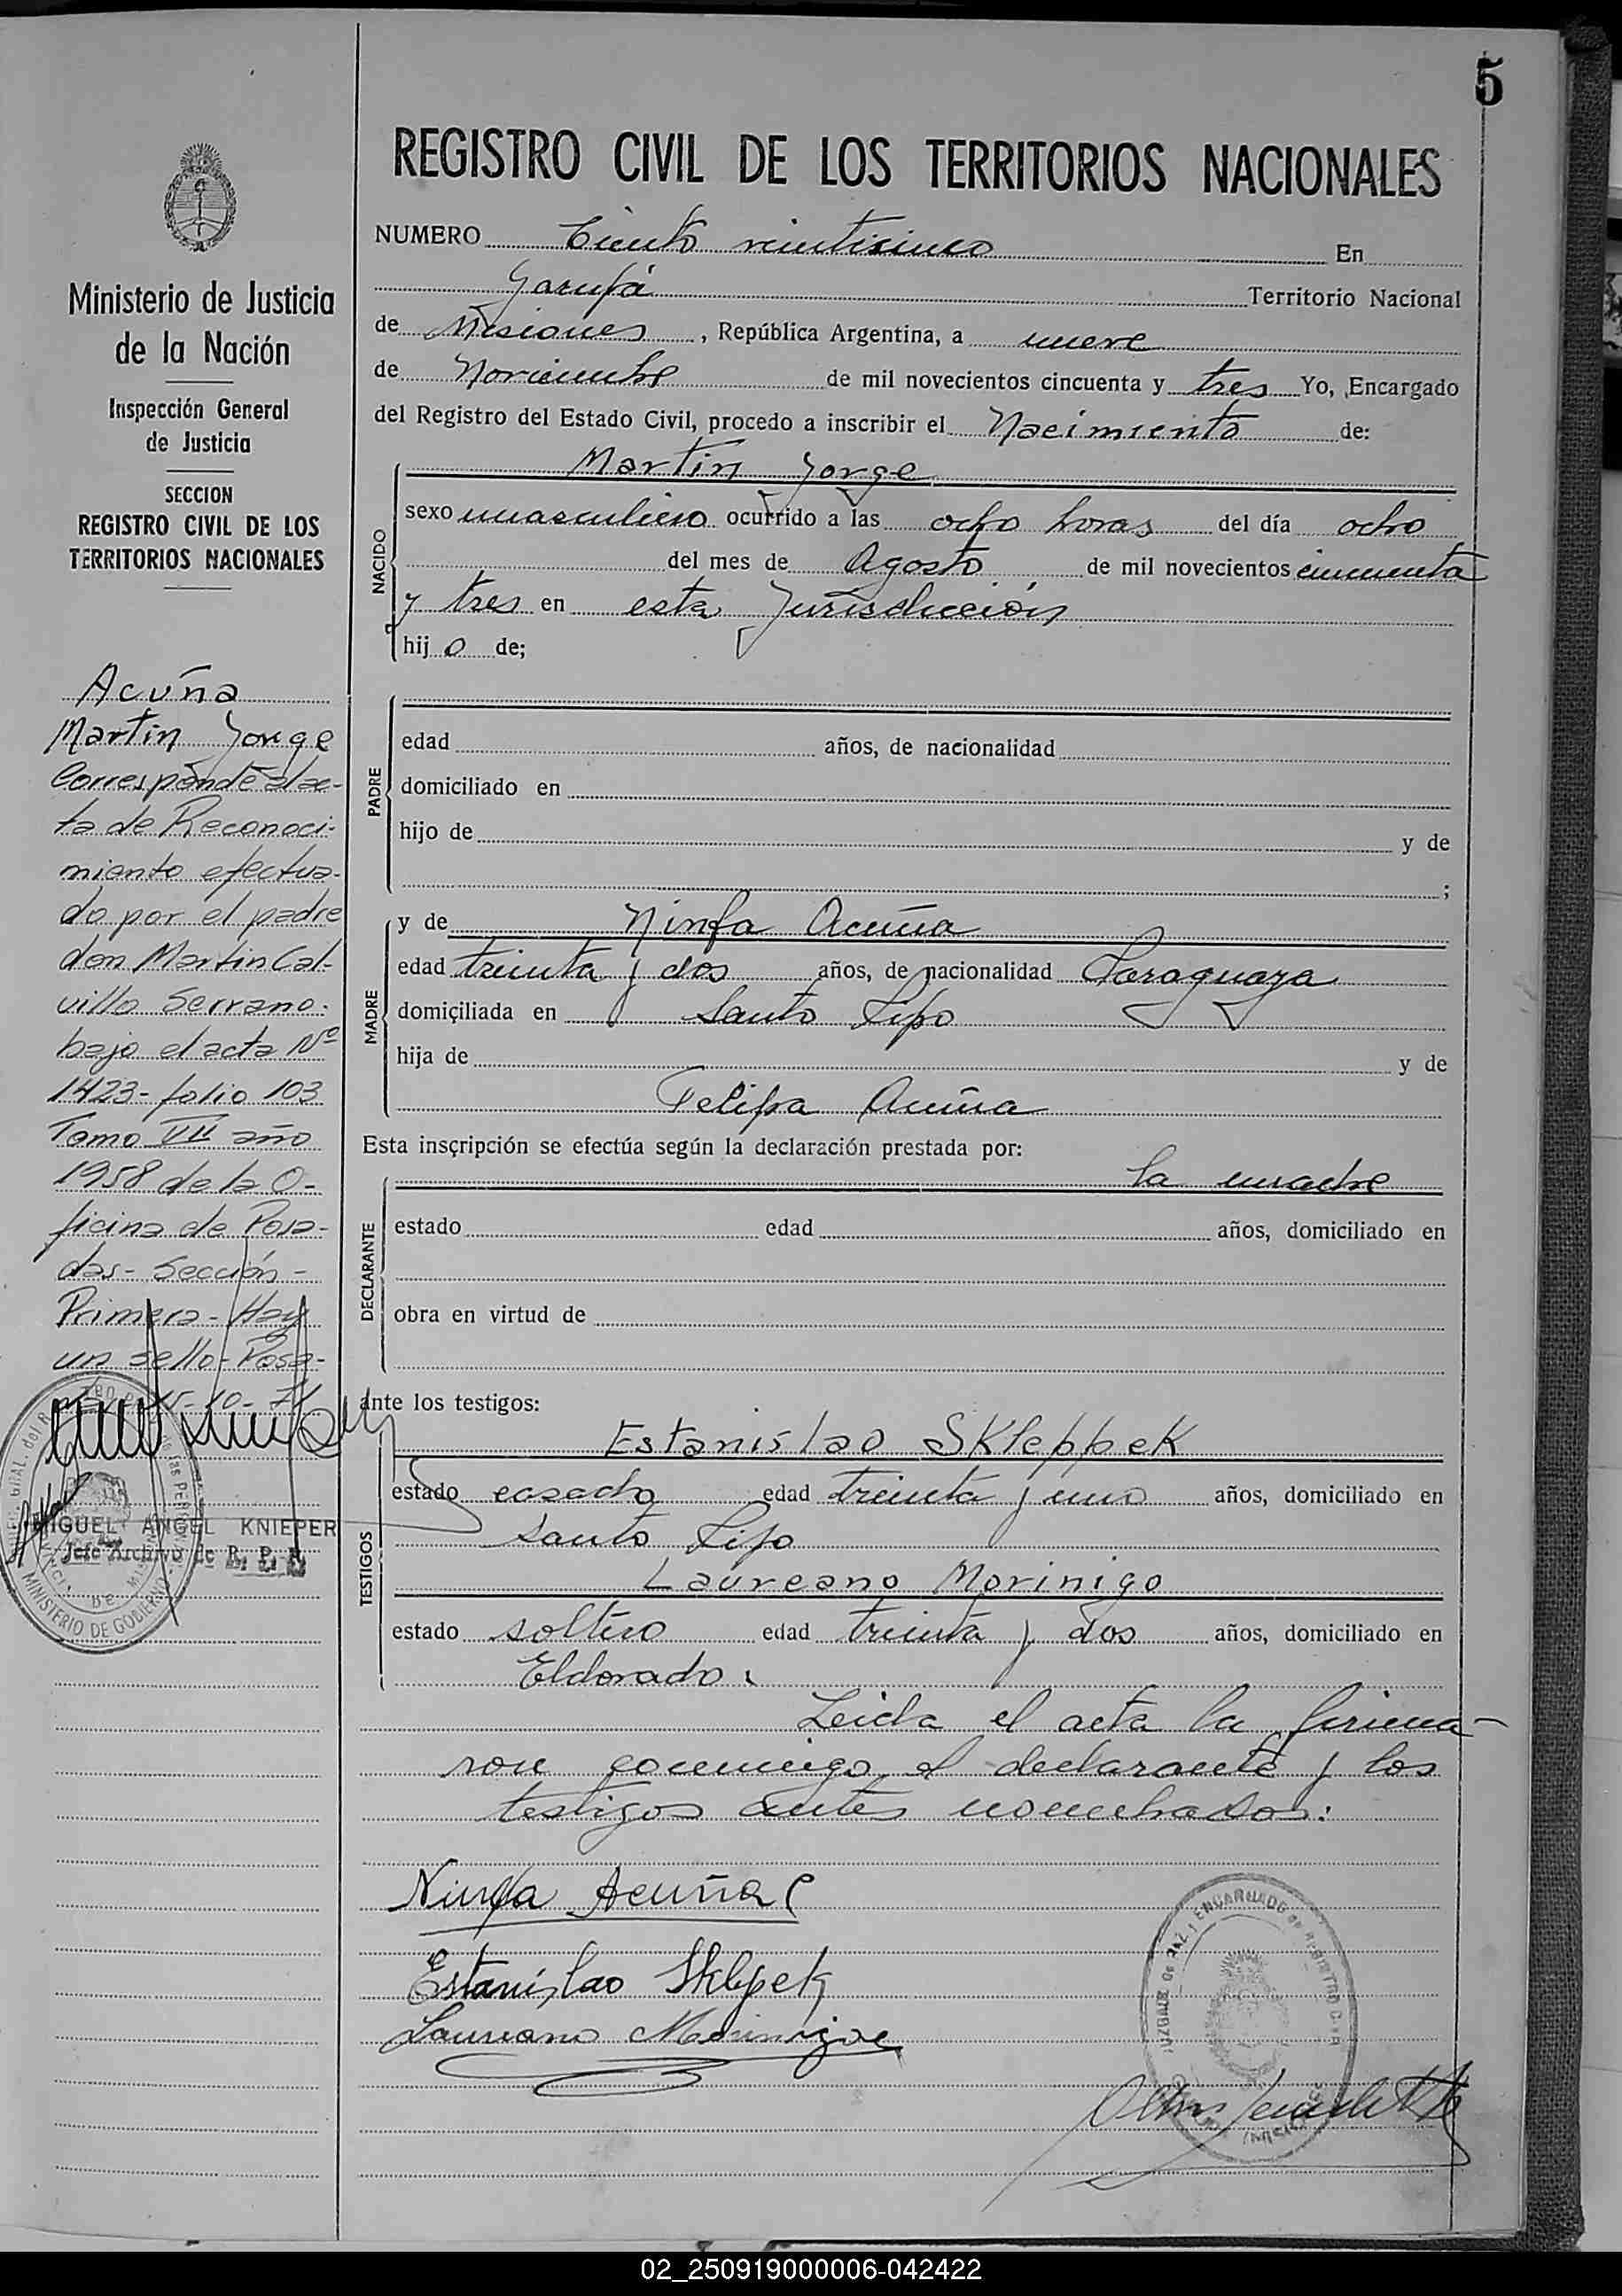 5
REGISTRO CIVIL DE LOS TERRITORIOS NACIONALES
NUMERO Ciento veinticinco En
Garupá Territorio Nacional
de Misiones, República Argentina, a nueve
de Noviembre de mil novecientos cincuenta y tres Yo, Encargado
del Registro del Estado Civil, procedo a inscribir el Nacimiento de:
NACIDO
Martin Jorge
sexo masculino ocurrido a las ocho horas del día ocho
del mes de Agosto de mil novecientos cincuenta
y tres en esta Jurisdicción
hijo de;
PADRE
edad años, de nacionalidad
domiciliado en
hijo de y de
;
MADRE
y de Ninfa Acuña
edad treinta y dos años, de nacionalidad Paraguaya
domiciliada en Santo Pipo
hija de y de
Felipa Acuña
Esta inscripción se efectúa según la declaración prestada por:
DECLARANTE
la madre
estado edad años, domiciliado en
obra en virtud de
ante los testigos:
TESTIGOS
Estanislao SKleppeK
estado casado edad treinta y uno años, domiciliado en
Santo Pipo
Laureano Morinigo
estado soltero edad treinta y dos años, domiciliado en
Eldorado.
Leida el acta la firma-
ron conmigo el declarante y los
testigos antes nombrados:
Ninfa Acuña
Estanislao Sklepek
Laureano Morinigo
Ministerio de Justicia
de la Nación
Inspección General
de Justicia
SECCION
REGISTRO CIVIL DE LOS
TERRITORIOS NACIONALES
Acuña
Martin Jorge
Corresponde al ac-
ta de Reconoci-
miento efectua-
do por el padre
don Martin Cal-
villo Serrano.
bajo el acta Nº
1423- folio 103
Tomo VII año
1958 de la O-
ficina de Posa-
das- Sección-
Primera- Hay
un sello- Posa-
15-10-71
MIGUEL ANGEL KNIEPER
Jefe Archivo de R. P. P.
MINISTERIO DE GOBIERNO
02_250919000006-042422